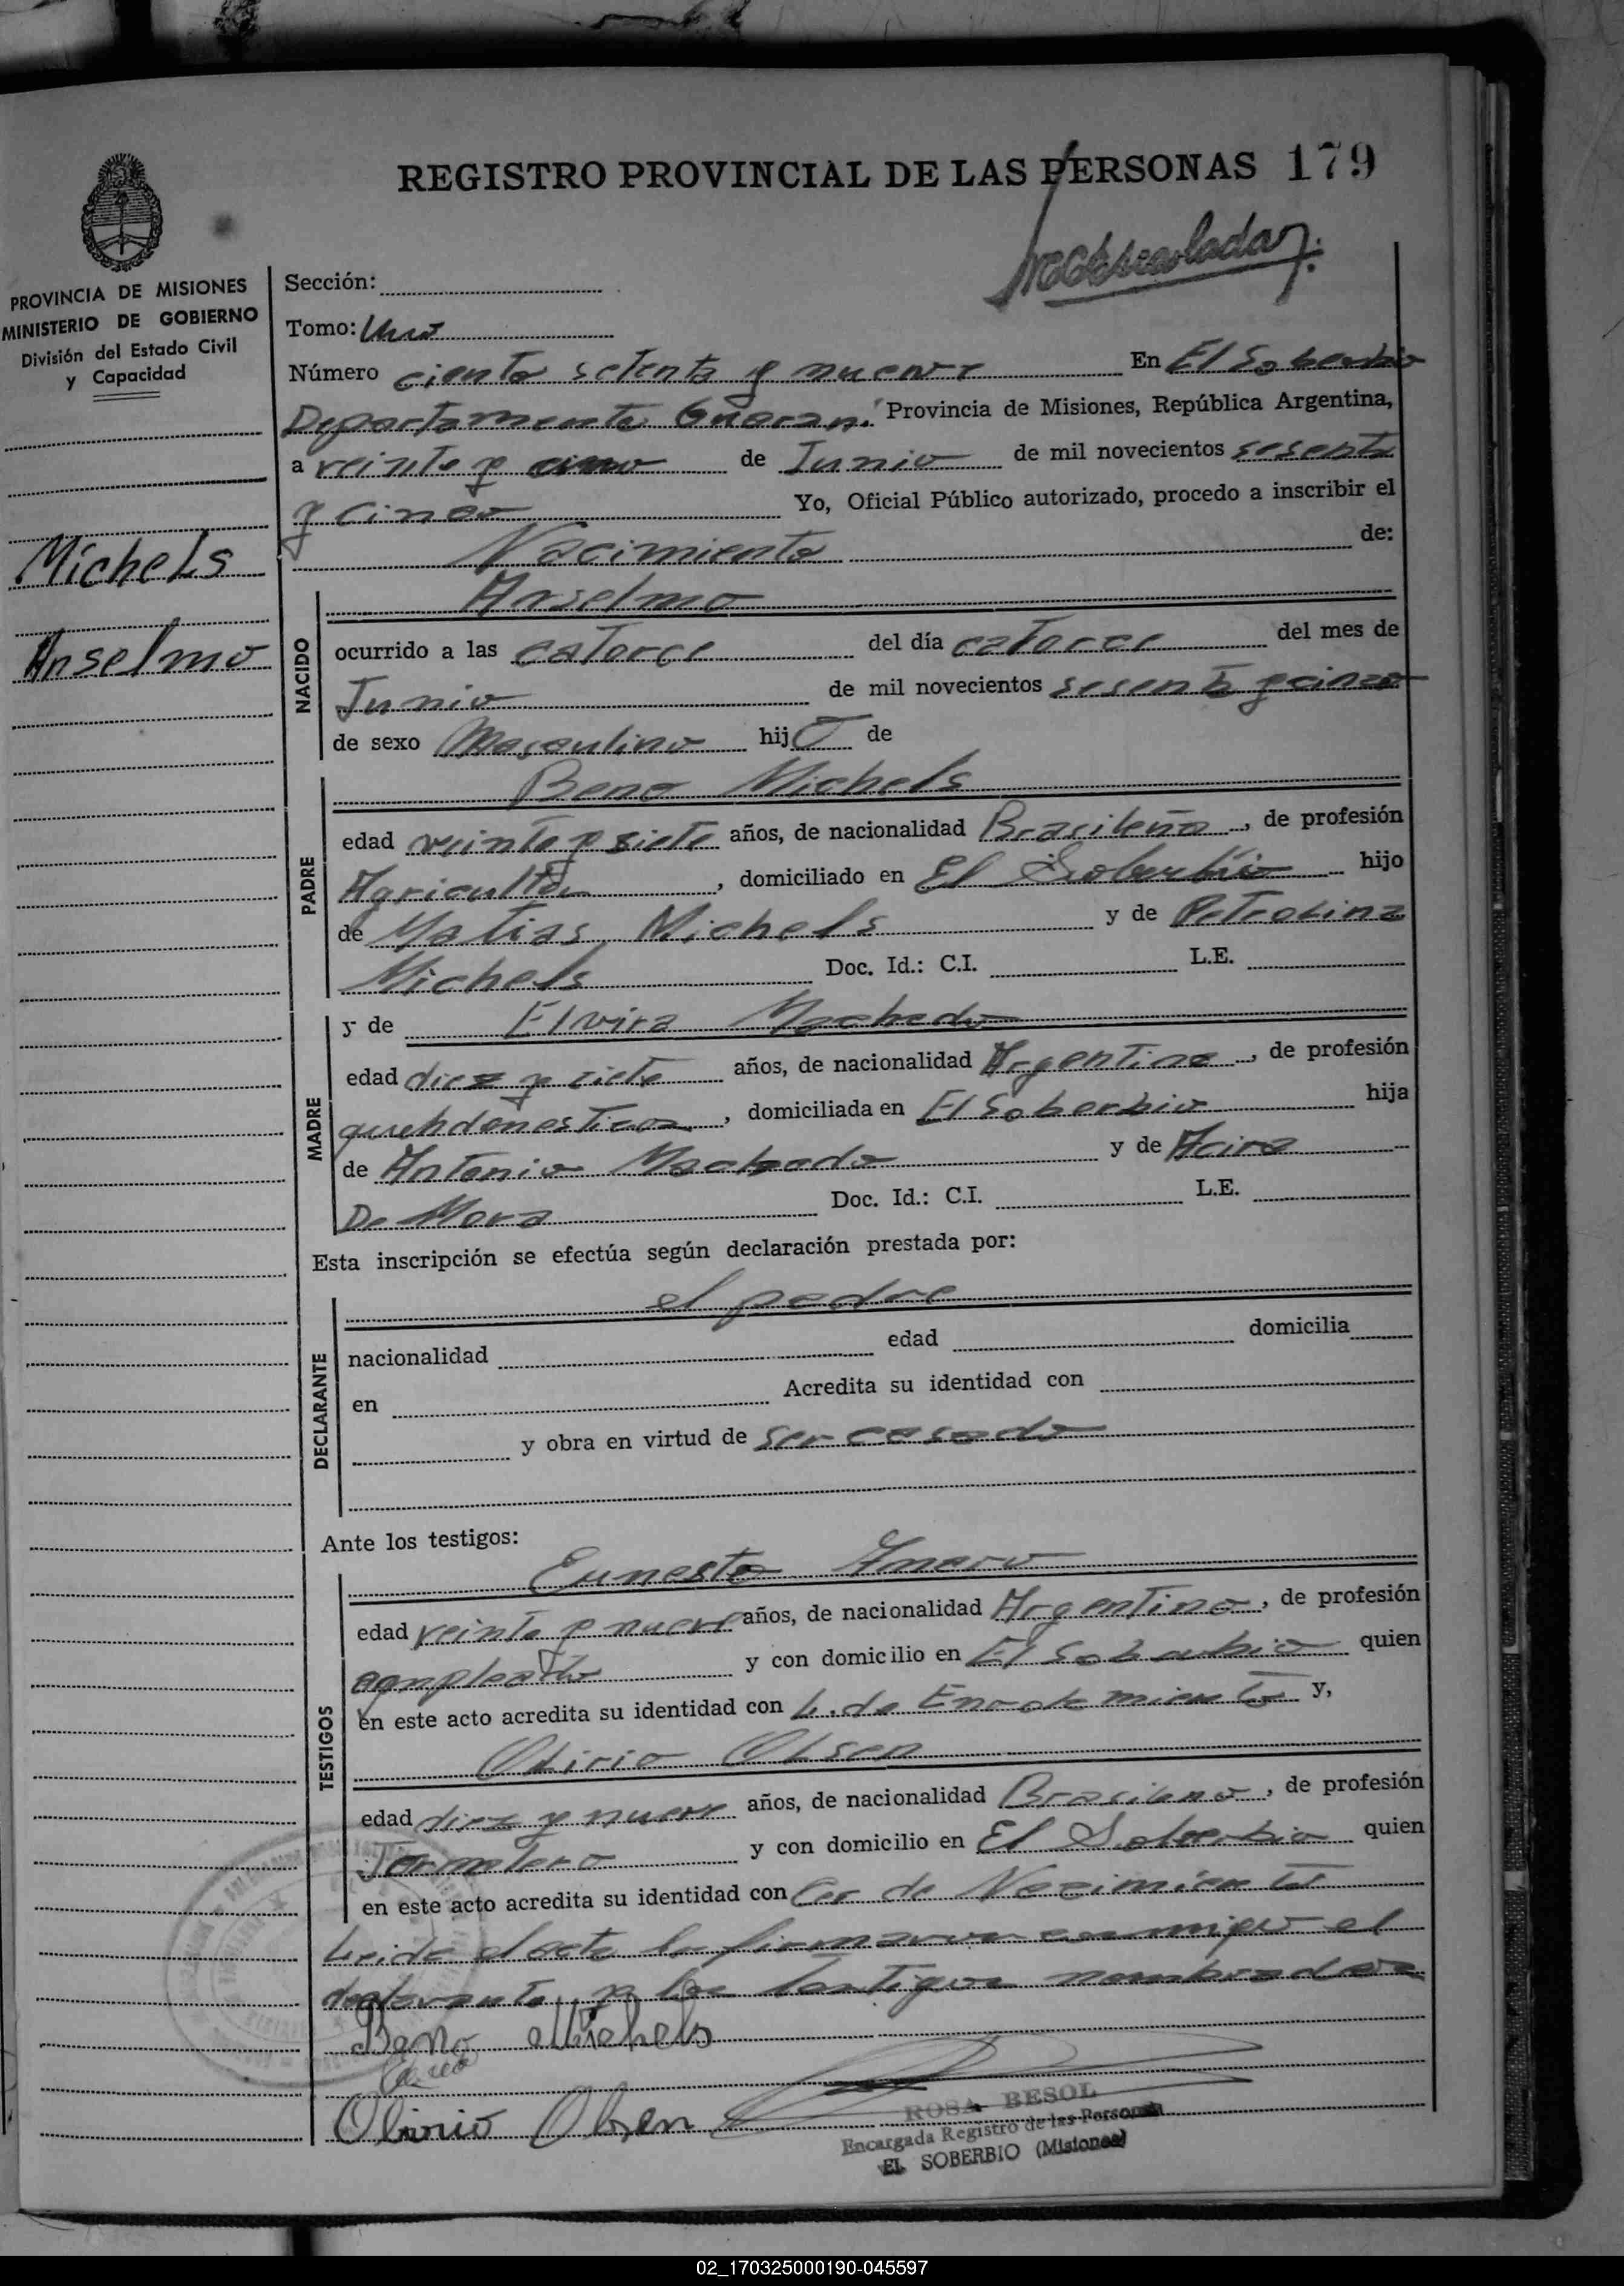 REGISTRO PROVINCIAL DE LAS PERSONAS 179
PROVINCIA DE MISIONES
MINISTERIO DE GOBIERNO
División del Estado Civil
y Capacidad
Michels
Anselmo
Sección:
Tomo: Uno
Número ciento setenta y nueve En El Soberbio
Departamento Guarani Provincia de Misiones, República Argentina,
a veinte y cinco de Junio de mil novecientos sesenta
y cinco Yo, Oficial Público autorizado, procedo a inscribir el
Nacimiento de:
NACIDO
Anselmo
ocurrido a las catorce del día catorce del mes de
Junio de mil novecientos sesenta y cinco
de sexo Masculino hijo de
PADRE
Beno Michels
edad veinte y siete años, de nacionalidad Brasileña, de profesión
Agricultor, domiciliado en El Soberbio hijo
de Matias Michels y de Petrolina
Michels Doc. Id.: C.I. L.E.
MADRE
y de Elvira Machado
edad diez y siete años, de nacionalidad Argentina, de profesión
domiciliada en El Soberbio hija
de Antonio Machado y de Acira
De Mora Doc. Id.: C.I. L.E.
Esta inscripción se efectúa según declaración prestada por:
DECLARANTE
el padre
nacionalidad edad domicilia
en Acredita su identidad con
y obra en virtud de ser casado
Ante los testigos:
TESTIGOS
Ernesto
edad veinte y nueve años, de nacionalidad Argentino, de profesión
empleado y con domicilio en El Soberbio quien
en este acto acredita su identidad con L. de Enrolamiento y,
Olirio Olsen
edad diez y nueve años, de nacionalidad Brasileno, de profesión
Jornalero y con domicilio en El Soberbio quien
en este acto acredita su identidad con Cer de Nacimiento
Leida el acta la firmaron conmigo el
declarante y los testigos nombrados
Beno Michels
Olirio Olsen
ROSA BESOL
Encargada Registro de las Personas
EL SOBERBIO (Misiones)
02_170325000190-045597